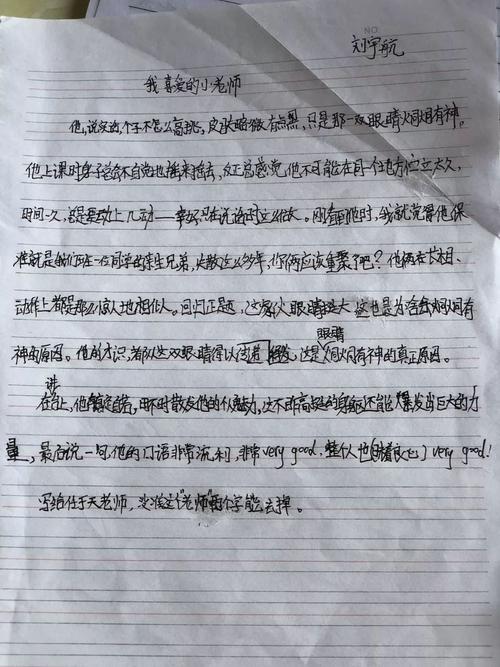 NO.
刘宇航
我喜爱的小老师
他,说实话,个子不怎么高挑,皮肤略微有点黑,只是那一双眼睛炯炯有神。
他上课时身子总会不自觉地摇来摇去,反正总感觉他不可能在同一个地方伫立太久,
时间一久,总是要动上几动——幸好只在说话时立得太久。刚看到他时,我就觉得他保
准就是我们班一位同学的亲生兄弟,失散这么多年,你俩应该重聚了吧?他俩在长相、
动作上都是那么惊人地相似。回归正题,这家伙眼睛挺大,这也是为啥会炯炯有
神的原因。他的才识,都从这双眼睛得以,这是眼睛炯炯有神的真正原因。
在讲台上,他镇定自若,时不时散发他的个人魅力,这不非高挺的身躯还能爆发出巨大的力
量,最后说一句,他的口语非常流利,非常very good.整个人也very good!
写给任于天老师,没准这“老师”两个字能去掉。